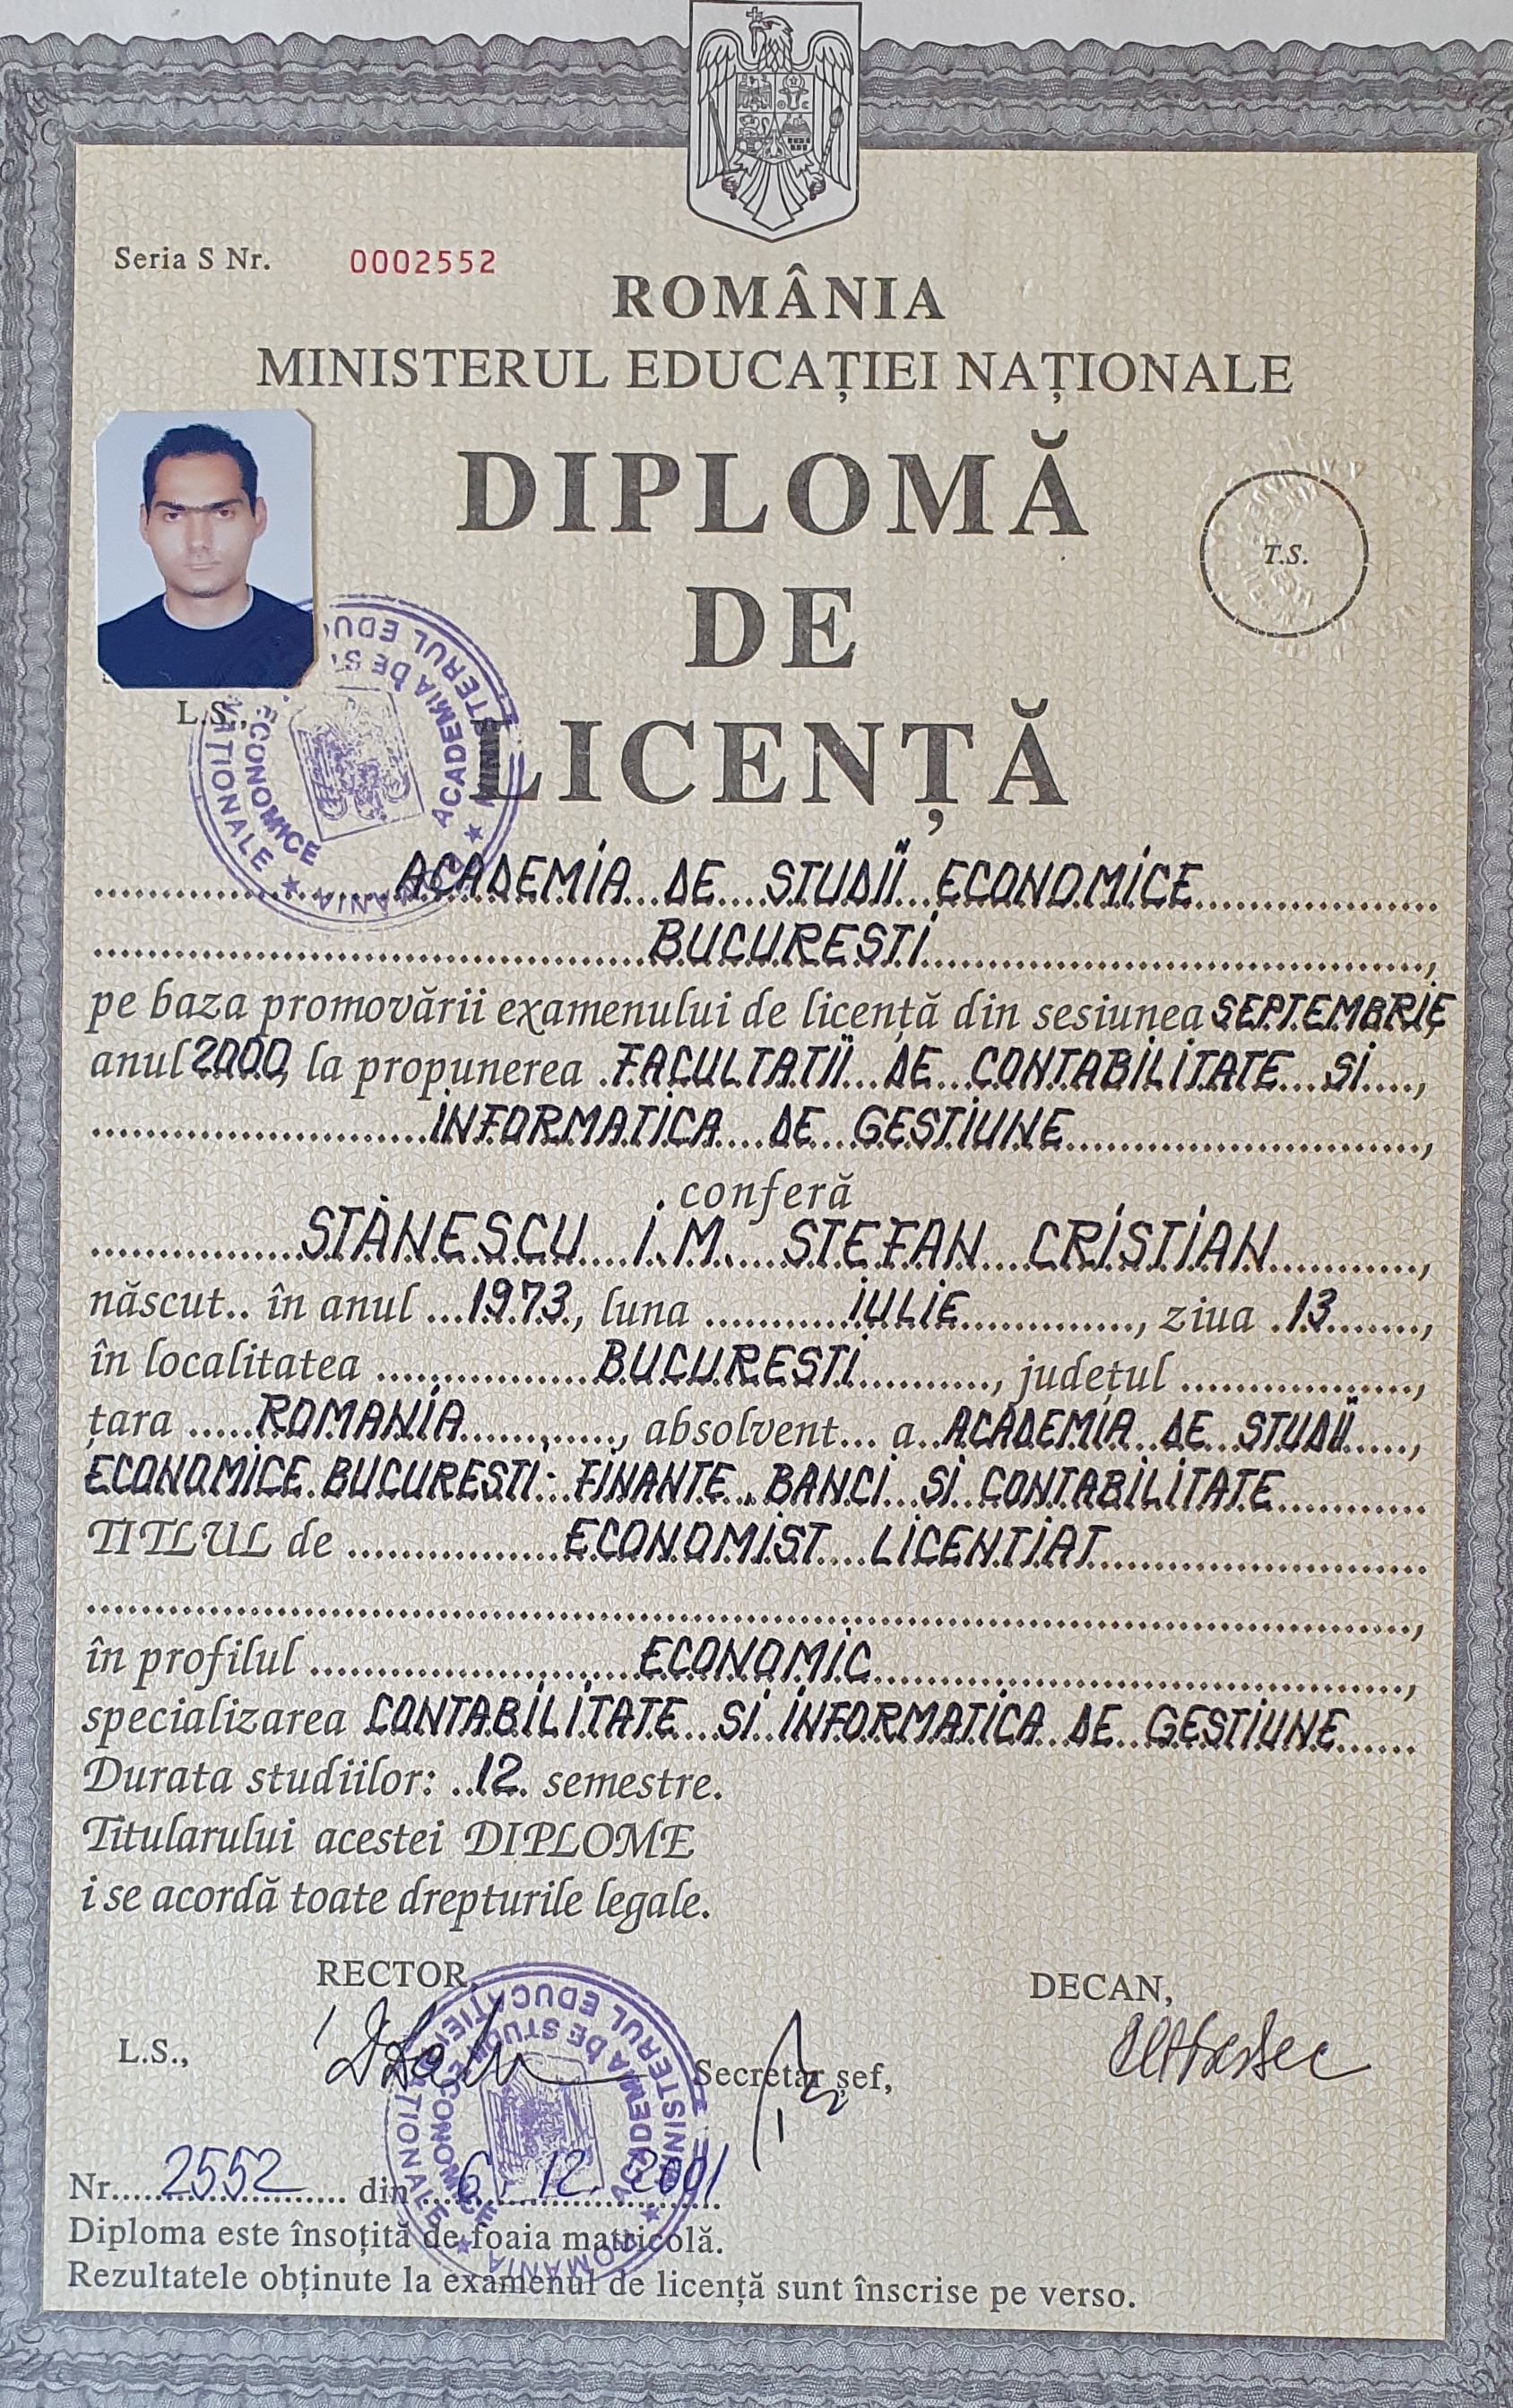 Seria S Nr. 0002552
ROMÂNIA
MINISTERUL EDUCAȚIEI NAȚIONALE
DIPLOMĂ
DE
LICENȚĂ
T.S.
L.S.,
MINISTERUL EDUCAȚIEI NAȚIONALE ★ ROMANIA ★
ACADEMIA DE STUDII ECONOMICE
ACADEMIA DE STUDII ECONOMICE
BUCURESTI,
pe baza promovării examenului de licență din sesiunea SEPTEMBRIE
anul 2000, la propunerea FACULTATII DE CONTABILITATE SI,
INFORMATICA DE GESTIUNE,
conferă
STĂNESCU I.M. STEFAN CRISTIAN,
născut.. în anul ...1973, luna IULIE, ziua 13,
în localitatea BUCURESTI, județul ,
țara ROMANIA, absolvent... a ACADEMIA DE STUDII,
ECONOMICE BUCURESTI: FINANTE, BANCI SI CONTABILITATE
TITLUL de ECONOMIST LICENTIAT
în profilul ECONOMIC,
specializarea CONTABILITATE SI INFORMATICA DE GESTIUNE
Durata studiilor: ..12. semestre.
Titularului acestei DIPLOME
i se acordă toate drepturile legale.
RECTOR,
DECAN,
L.S.,
Secretar șef,
MINISTERUL EDUCAȚIEI NAȚIONALE ★ ROMANIA ★
ACADEMIA DE STUDII ECONOMICE
Nr. 2552 din 6. 12. 2001
Diploma este însoțită de foaia matricolă.
Rezultatele obținute la examenul de licență sunt înscrise pe verso.